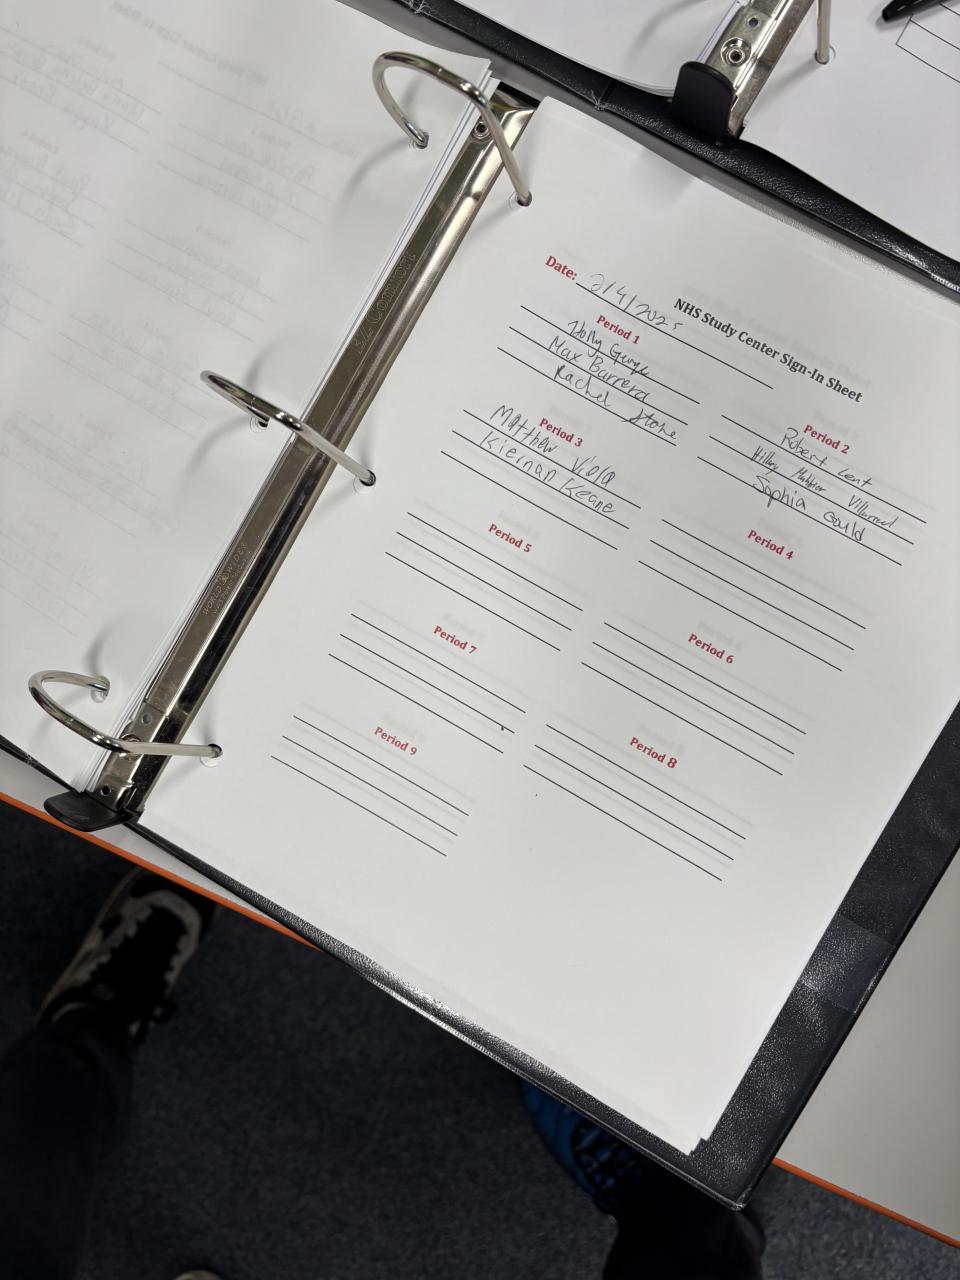 NHS Study Center Sign-In Sheet
Date: 2/4/2025
Period 1
Holly
Max Barrera
Rachel Stone
Period 2
Robert Lent
Hillary Villarreal
Sophia Gould
Period 3
Matthew Viola
Kiernan Keane
Period 4
Period 5
Period 6
Period 7
Period 8
Period 9
WORLD WIDE